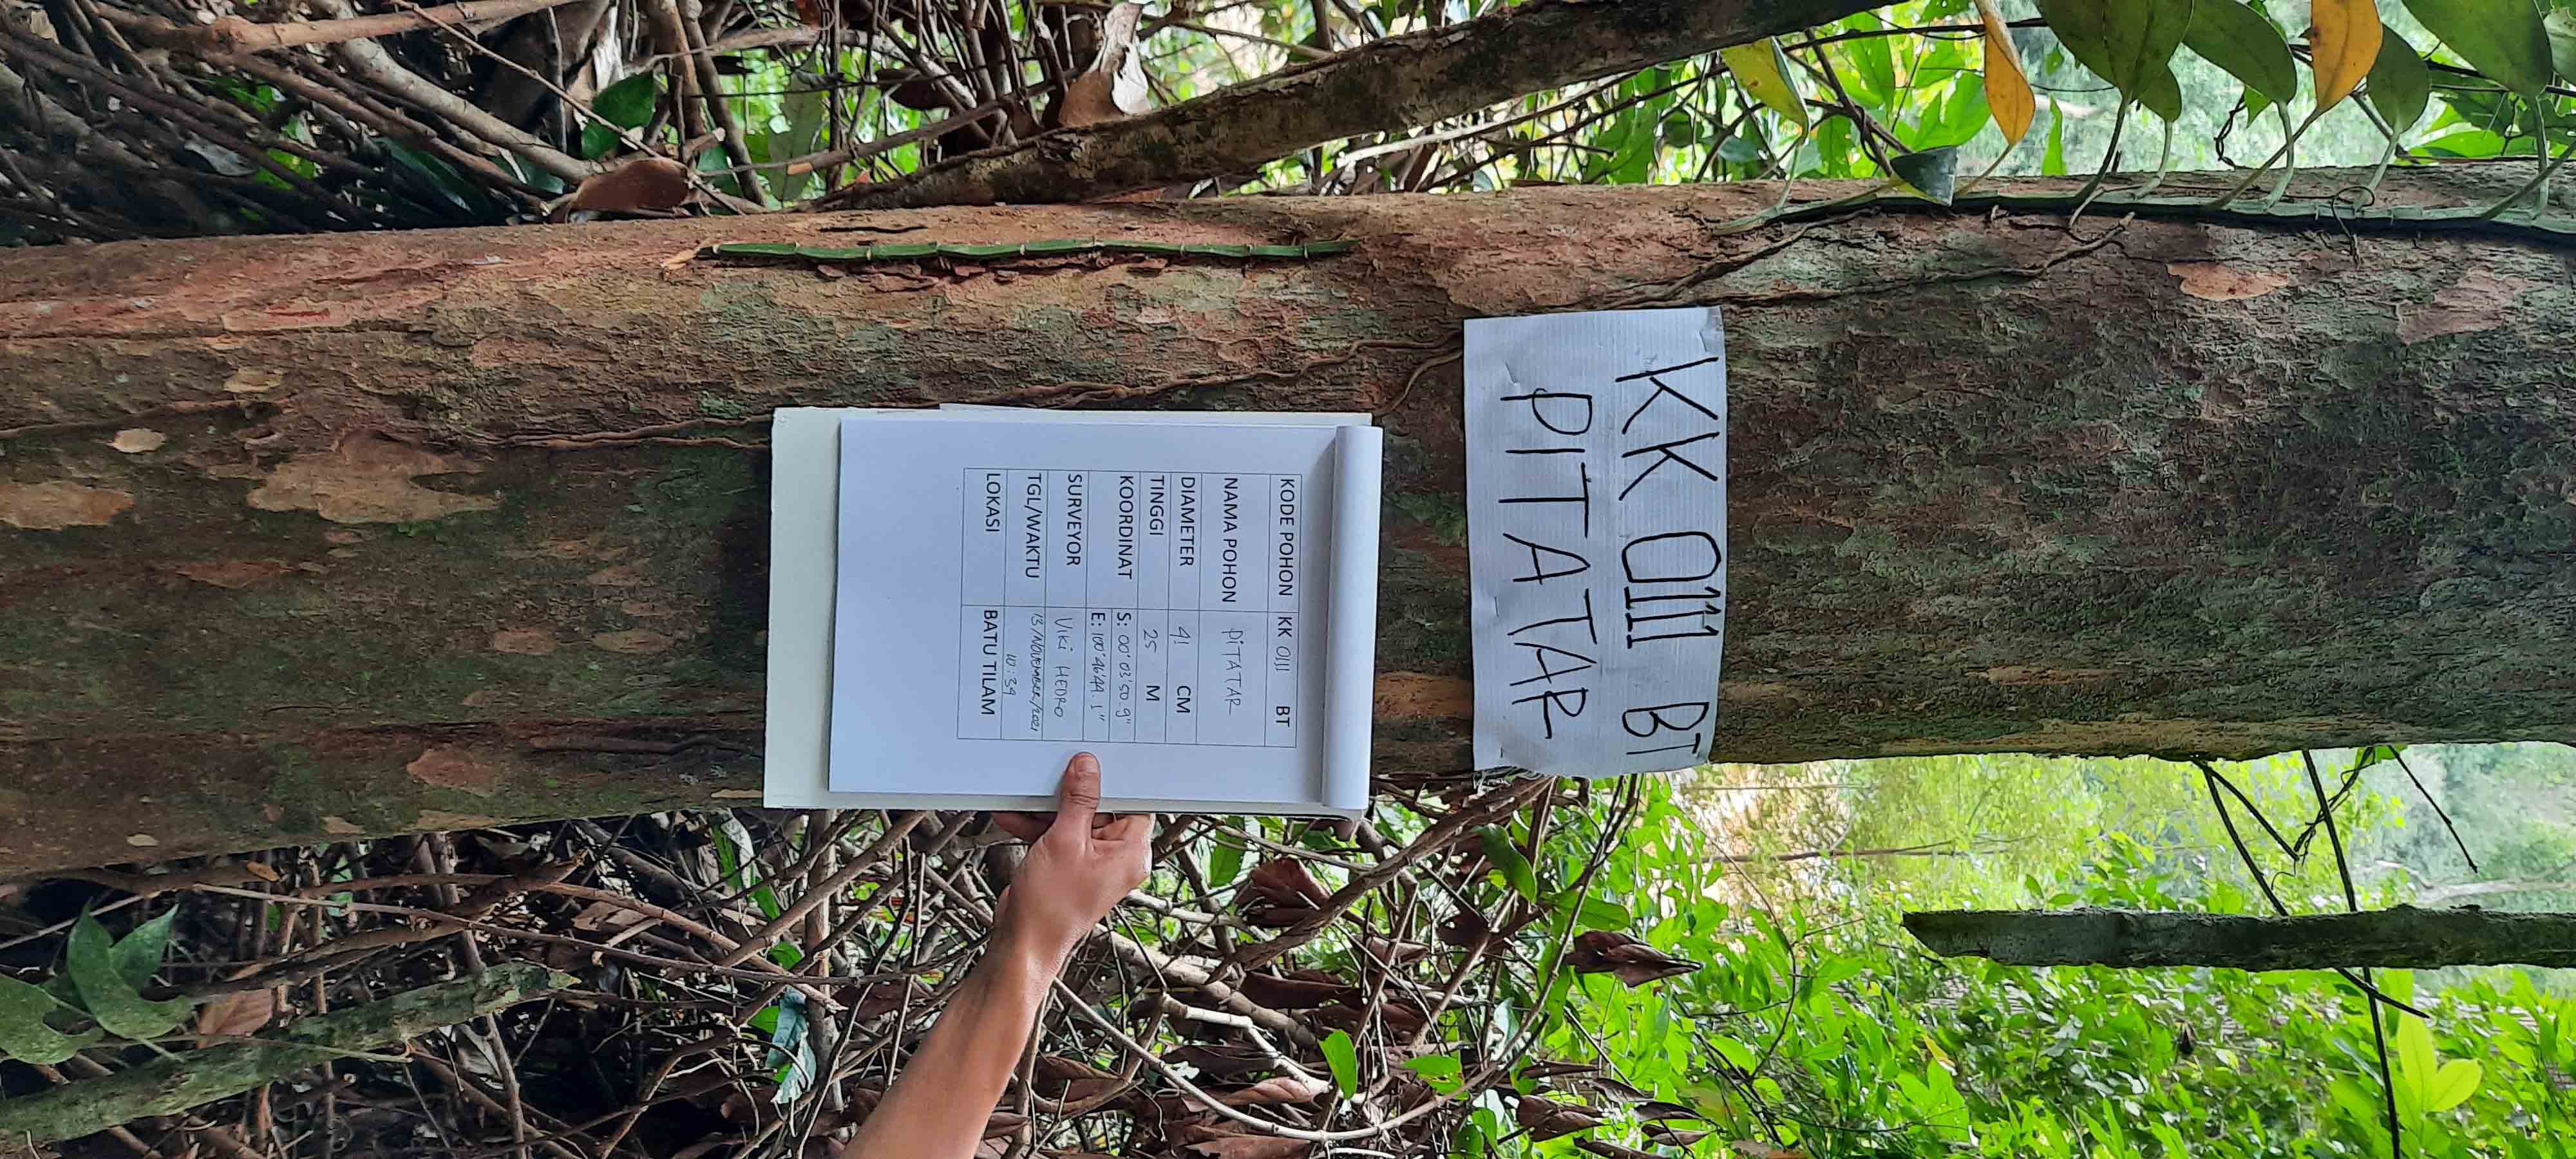 KK 0111 BT
PITATAR
KODE POHON KK 0111 BT
NAMA POHON PITATAR
DIAMETER 41 CM
TINGGI 25 M
KOORDINAT S: 00° 03' 50.9"
E: 100° 46' 49.1"
SURVEYOR VIKI HEDRO
TGL/WAKTU 13/NOVEMBER/2021
10:34
LOKASI BATU TILAM